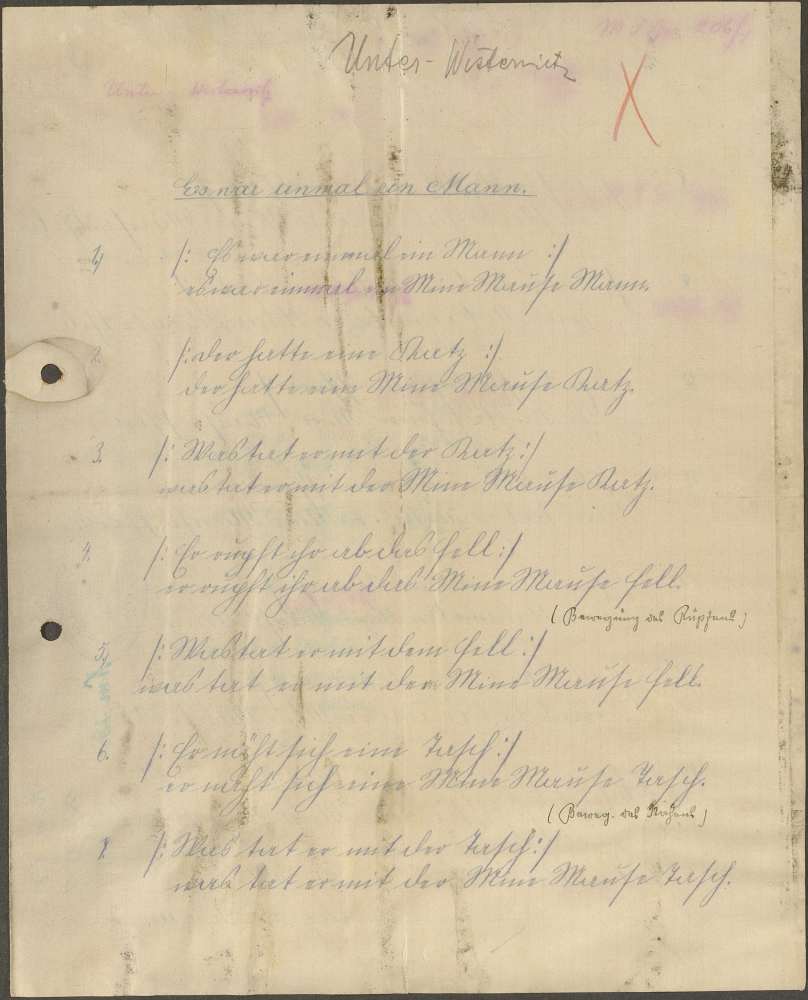 Unter-Wisternitz
Unter-Wisternitz
Es war einmal ein Mann.
1. /: Es war einmal ein Mann :/
es war einmal ein Mine Mause Mann.
2. /: der hatte eine Katz :/
der hatte eine Mine Mause Katz.
3. /: Was tat er mit der Katz :/
was tat er mit der Mine Mause Katz.
4. /: Er rupft ihr ab das Fell :/
er rupft ihr ab das Mine Mause Fell.
(Bewegung des Rupfens)
5. /: Was tat er mit dem Fell :/
was tat er mit dem Mine Mause Fell.
6. /: Er näht sich eine Tasch :/
er näht sich eine Mine Mause Tasch.
(Beweg. des Nähens)
7. /: Was tat er mit der Tasch :/
was tat er mit der Mine Mause Tasch.